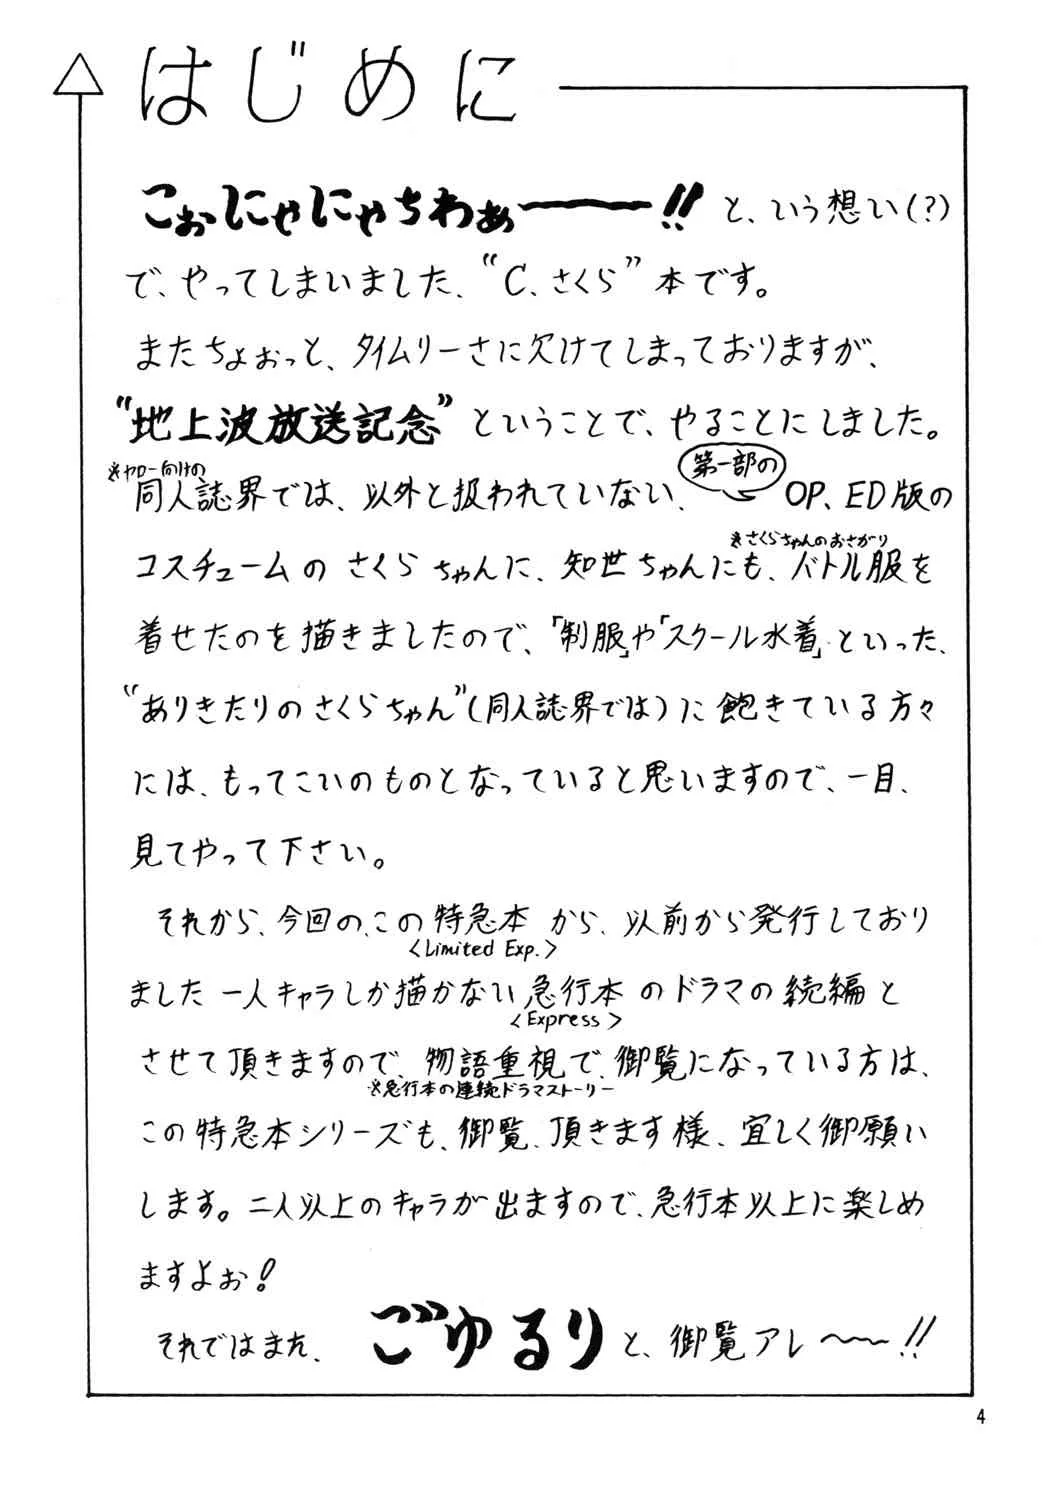 はじめに
こぉにゃにゃちわぁー!! と、いう想い(?)
で、やってしまいました、“C、さくら”本です。
またちょぉっと、タイムリーさに欠けてしまっておりますが、
“地上波放送記念”ということで、やることにしました。
※ヤロー向けの
第一部の
同人誌界では、以外と扱われていない、OP、ED版の
※さくらちゃんのおさがり
コスチュームのさくらちゃんに、知世ちゃんにも、バトル服を
着せたのを描きましたので、「制服」や「スクール水着」といった、
“ありきたりのさくらちゃん”(同人誌界では)に飽きている方々
には、もってこいのものとなっていると思いますので、一目、
見てやって下さい。
それから、今回の、この特急本から、以前から発行しており
<Limited Exp.>
ました一人キャラしか描かない急行本のドラマの続編と
<Express>
させて頂きますので、物語重視で、御覧になっている方は、
※急行本の連続ドラマストーリー
この特急本シリーズも、御覧、頂きます様、宜しく御願い
します。二人以上のキャラが出ますので、急行本以上に楽しめ
ますよぉ!
それではまた、ごゆるりと、御覧アレ〜〜!!
4